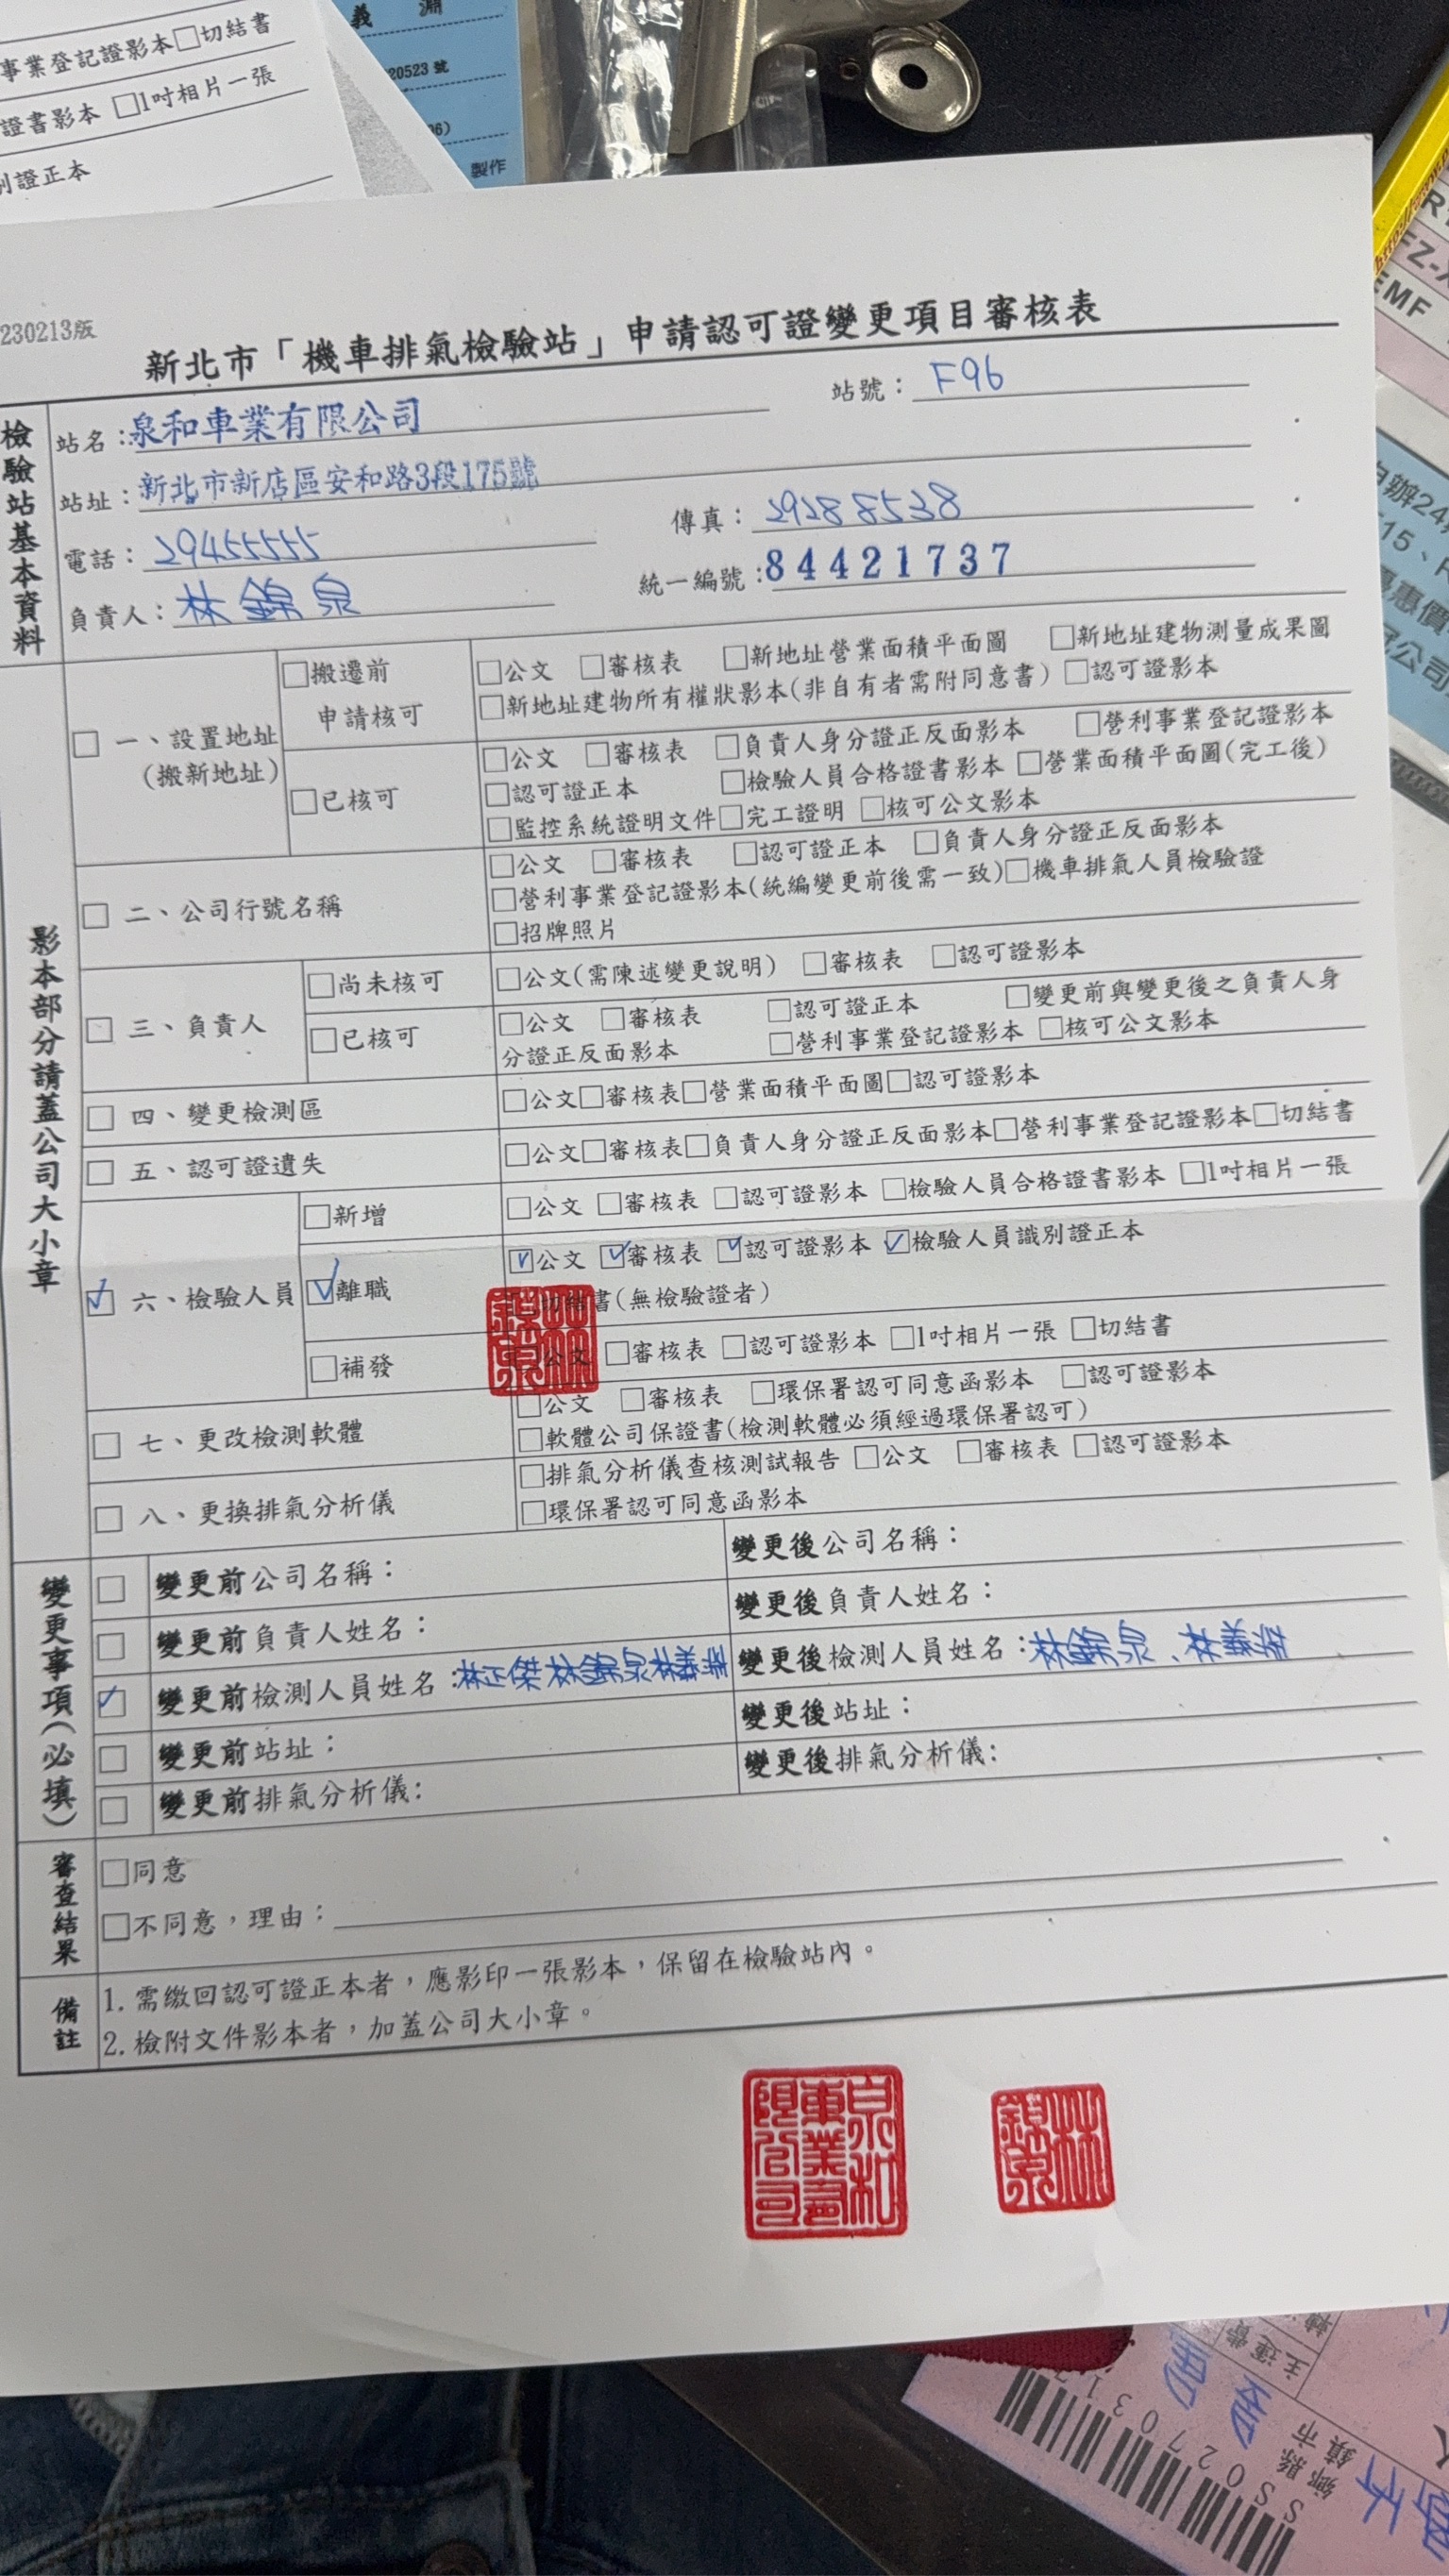 事業登記證影本□切結書
證書影本 □1吋相片一張
別證正本
義 淵
20523 號
製作
230213版
新北市「機車排氣檢驗站」申請認可證變更項目審核表
檢驗站基本資料
站名：泉和車業有限公司 站號：F96
站址：新北市新店區安和路3段175號
電話：29455555 傳真：29288538
負責人：林錦泉 統一編號：84421737
影本部分請蓋公司大小章
□ 一、設置地址
(搬新地址)
□搬遷前
申請核可
□公文 □審核表 □新地址營業面積平面圖 □新地址建物測量成果圖
□新地址建物所有權狀影本(非自有者需附同意書) □認可證影本
□已核可
□公文 □審核表 □負責人身分證正反面影本 □營利事業登記證影本
□認可證正本 □檢驗人員合格證書影本 □營業面積平面圖(完工後)
□監控系統證明文件□完工證明 □核可公文影本
□ 二、公司行號名稱
□公文 □審核表 □認可證正本 □負責人身分證正反面影本
□營利事業登記證影本(統編變更前後需一致)□機車排氣人員檢驗證
□招牌照片
□ 三、負責人
□尚未核可 □公文(需陳述變更說明) □審核表 □認可證影本
□已核可 □公文 □審核表 □認可證正本 □變更前與變更後之負責人身
分證正反面影本 □營利事業登記證影本 □核可公文影本
□ 四、變更檢測區 □公文□審核表□營業面積平面圖□認可證影本
□ 五、認可證遺失 □公文□審核表□負責人身分證正反面影本□營利事業登記證影本□切結書
☑ 六、檢驗人員
□新增 □公文 □審核表 □認可證影本 □檢驗人員合格證書影本 □1吋相片一張
☑離職 ☑公文 ☑審核表 ☑認可證影本 ☑檢驗人員識別證正本
□切結書(無檢驗證者)
□補發 □公文 □審核表 □認可證影本 □1吋相片一張 □切結書
□ 七、更改檢測軟體 □公文 □審核表 □環保署認可同意函影本 □認可證影本
□軟體公司保證書(檢測軟體必須經過環保署認可)
□ 八、更換排氣分析儀 □排氣分析儀查核測試報告 □公文 □審核表 □認可證影本
□環保署認可同意函影本
變更事項(必填)
□ 變更前公司名稱： 變更後公司名稱：
□ 變更前負責人姓名： 變更後負責人姓名：
☑ 變更前檢測人員姓名：林正傑林錦泉林義淵 變更後檢測人員姓名：林錦泉、林義淵
□ 變更前站址： 變更後站址：
□ 變更前排氣分析儀: 變更後排氣分析儀:
審查結果
□同意
□不同意，理由：
備註
1. 需繳回認可證正本者，應影印一張影本，保留在檢驗站內。
2. 檢附文件影本者，加蓋公司大小章。
泉和車業有限公司
林錦泉